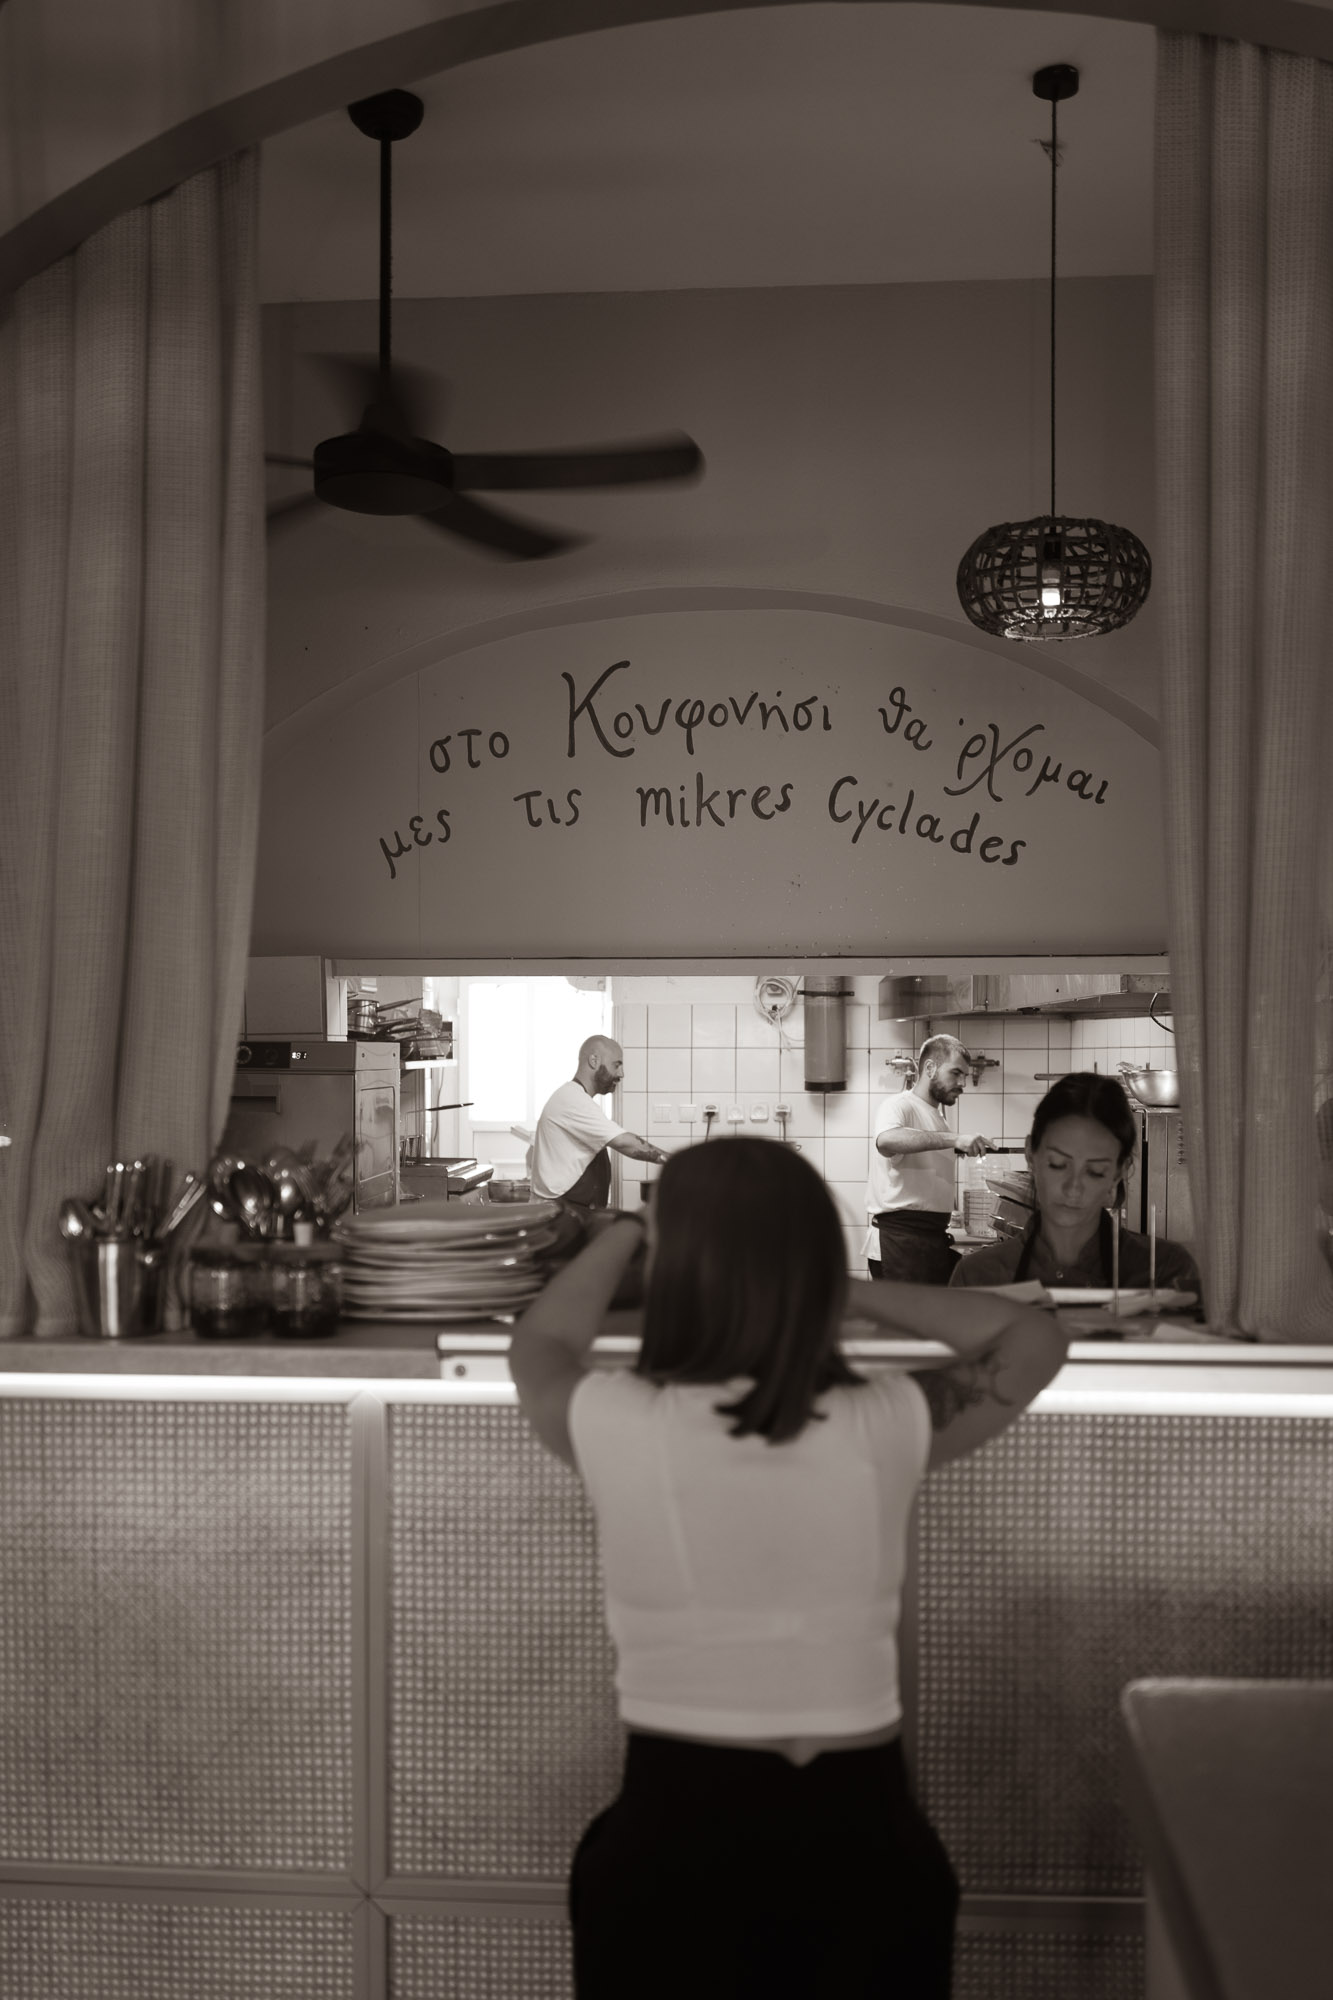 στο Κουφονήσι θα 'ρχομαι
μες τις mikres Cyclades